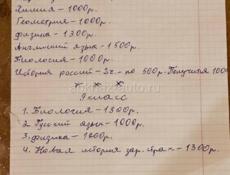 Химия - 1000р.
Геометрия - 1000р.
Физика - 1300р.
Английский язык - 1500р.
Биология - 1000р.
История россии - 2х - по 500р. Получится 1000
* * *
9 класс
1. Биология - 1300р.
2. Русский язык - 1000р.
3. Физика - 1000р.
4. Новая история зар. стран - 1300р.